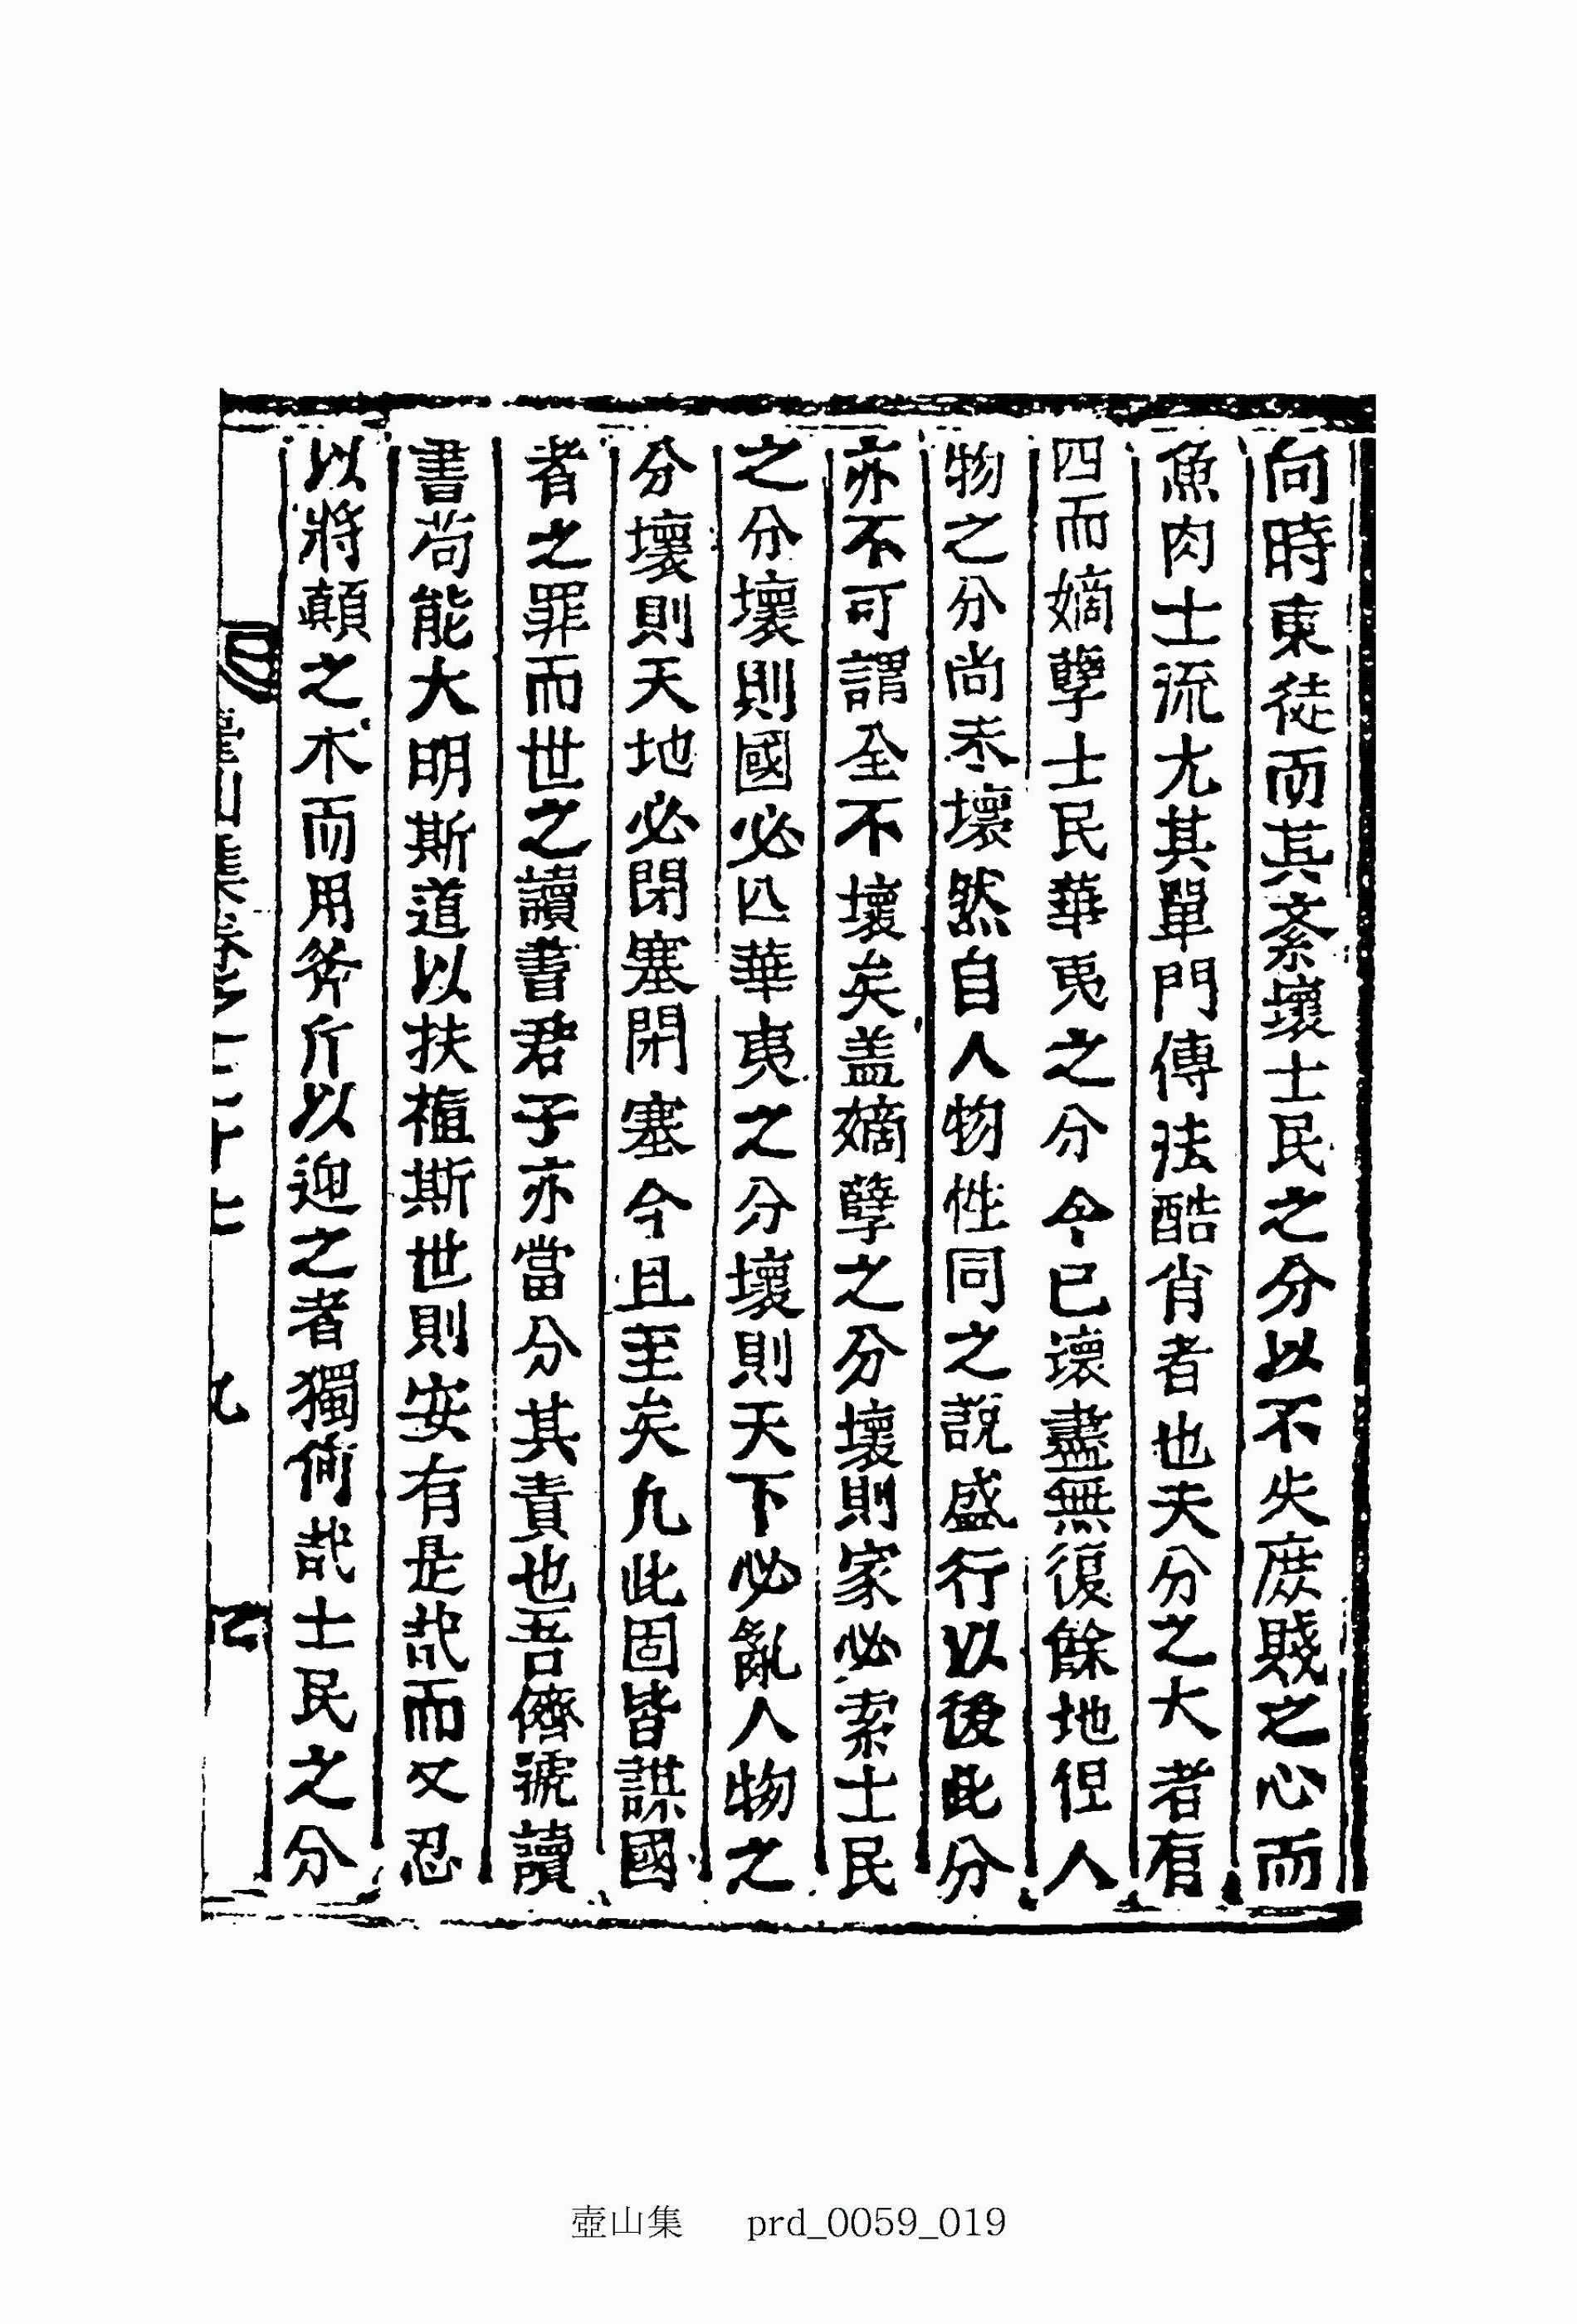 向時東徒而其紊壞士民之分以不失庶賤之心而
魚肉士流尤其單門傳法酷肖者也夫分之大者有
四而嫡孼士民華夷之分今已壞盡無復餘地但人
物之分尚未壞然自人物性同之說盛行以後此分
亦不可謂全不壞矣盖嫡孼之分壞則家必索士民
之分壞則國必亾華夷之分壞則天下必亂人物之
分壞則天地必閉塞閉塞今且至矣凡此固皆謀國
者之罪而世之讀書君子亦當分其責也吾儕號讀
書苟能大明斯道以扶植斯世則安有是哉而又忍
以將顚之木而用斧斤以迎之者獨何哉士民之分
壺山集卷之二十七 九
壺山集 prd_0059_019